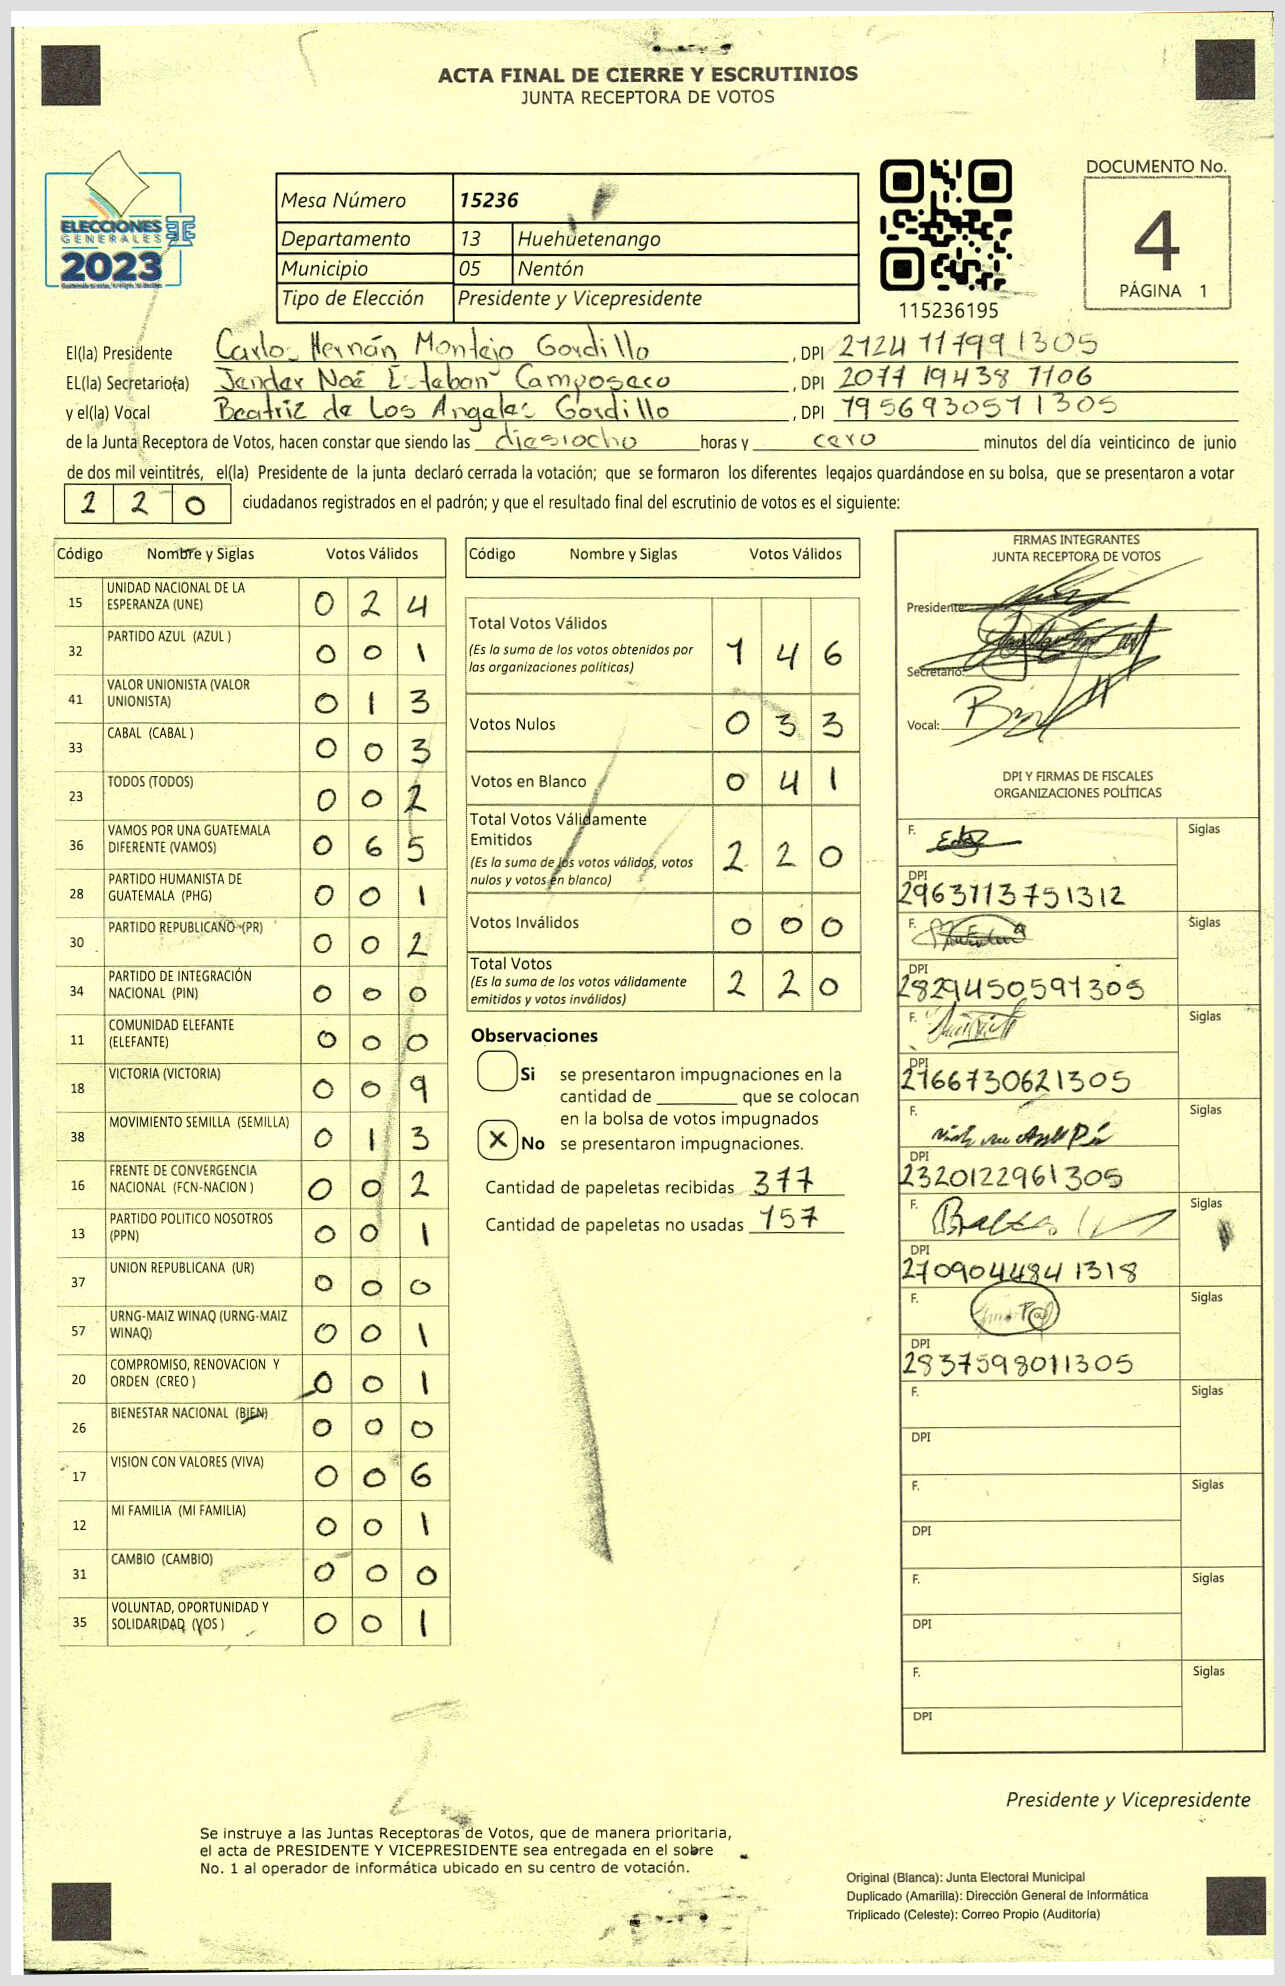 ACTA FINAL DE CIERRE Y ESCRUTINIOS
JUNTA RECEPTORA DE VOTOS
ELECCIONES
GENERALES
2023
Mesa Número 15236
Departamento 13 Huehuetenango
Municipio 05 Nentón
Tipo de Elección Presidente y Vicepresidente
115236195
DOCUMENTO No.
4
PÁGINA 1
El(la) Presidente Carlos Hernán Montejo Gordillo, DPI 2124117991305
EL(la) Secretario(a) Jender Noé Esteban Camposeco, DPI 2077 19438 1106
y el(la) Vocal Beatriz de Los Angeles Gordillo, DPI 7956930571305
de la Junta Receptora de Votos, hacen constar que siendo las dieciocho horas y cero minutos del día veinticinco de junio
de dos mil veintitrés, el(la) Presidente de la junta declaró cerrada la votación; que se formaron los diferentes legajos quardándose en su bolsa, que se presentaron a votar
220 ciudadanos registrados en el padrón; y que el resultado final del escrutinio de votos es el siguiente:
Código Nombre y Siglas Votos Válidos
15 UNIDAD NACIONAL DE LA ESPERANZA (UNE) 0 2 4
32 PARTIDO AZUL (AZUL ) 0 0 1
41 VALOR UNIONISTA (VALOR UNIONISTA) 0 1 3
33 CABAL (CABAL ) 0 0 3
23 TODOS (TODOS) 0 0 2
36 VAMOS POR UNA GUATEMALA DIFERENTE (VAMOS) 0 6 5
28 PARTIDO HUMANISTA DE GUATEMALA (PHG) 0 0 1
30 PARTIDO REPUBLICANO (PR) 0 0 2
34 PARTIDO DE INTEGRACIÓN NACIONAL (PIN) 0 0 0
11 COMUNIDAD ELEFANTE (ELEFANTE) 0 0 0
18 VICTORIA (VICTORIA) 0 0 9
38 MOVIMIENTO SEMILLA (SEMILLA) 0 1 3
16 FRENTE DE CONVERGENCIA NACIONAL (FCN-NACION ) 0 0 2
13 PARTIDO POLITICO NOSOTROS (PPN) 0 0 1
37 UNION REPUBLICANA (UR) 0 0 0
57 URNG-MAIZ WINAQ (URNG-MAIZ WINAQ) 0 0 1
20 COMPROMISO, RENOVACION Y ORDEN (CREO ) 0 0 1
26 BIENESTAR NACIONAL (BIEN) 0 0 0
17 VISION CON VALORES (VIVA) 0 0 6
12 MI FAMILIA (MI FAMILIA) 0 0 1
31 CAMBIO (CAMBIO) 0 0 0
35 VOLUNTAD, OPORTUNIDAD Y SOLIDARIDAD (VOS ) 0 0 1
Código Nombre y Siglas Votos Válidos
Total Votos Válidos 1 4 6
(Es la suma de los votos obtenidos por
las organizaciones políticas)
Votos Nulos 0 3 3
Votos en Blanco 0 4 1
Total Votos Válidamente
Emitidos 2 2 0
(Es la suma de los votos válidos, votos
nulos y votos en blanco)
Votos Inválidos 0 0 0
Total Votos 2 2 0
(Es la suma de los votos válidamente
emitidos y votos inválidos)
Observaciones
Si se presentaron impugnaciones en la
cantidad de ________ que se colocan
en la bolsa de votos impugnados
X No se presentaron impugnaciones.
Cantidad de papeletas recibidas 377
Cantidad de papeletas no usadas 157
FIRMAS INTEGRANTES
JUNTA RECEPTORA DE VOTOS
Presidente:
Secretario:
Vocal:
DPI Y FIRMAS DE FISCALES
ORGANIZACIONES POLÍTICAS
F. Siglas
DPI
2963713751312
F. Siglas
DPI
2829450591305
F. Siglas
DPI
2166730621305
F. Siglas
DPI
2320122961305
F. Siglas
DPI
2709044841318
F. Siglas
DPI
2837598011305
F. Siglas
DPI
F. Siglas
DPI
F. Siglas
DPI
F. Siglas
DPI
Presidente y Vicepresidente
Se instruye a las Juntas Receptoras de Votos, que de manera prioritaria,
el acta de PRESIDENTE Y VICEPRESIDENTE sea entregada en el sobre
No. 1 al operador de informática ubicado en su centro de votación.
Original (Blanca): Junta Electoral Municipal
Duplicado (Amarilla): Dirección General de Informática
Triplicado (Celeste): Correo Propio (Auditoría)